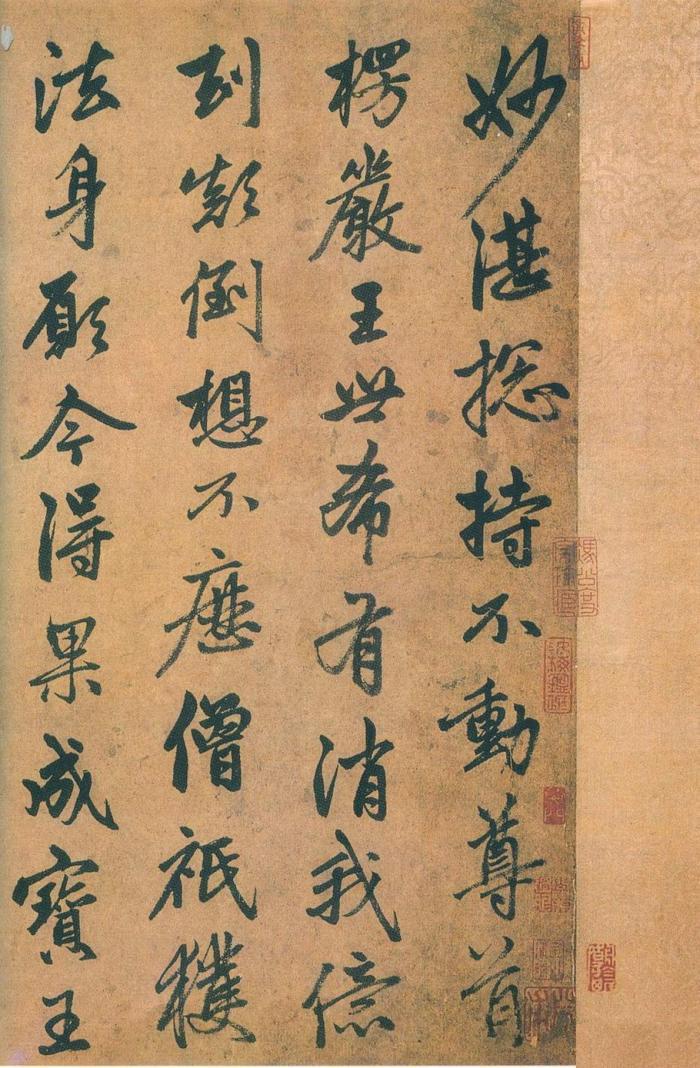 妙湛捴持不動尊首
楞嚴王世希有消我億
刦顛倒想不歴僧祇穫
法身願今得果成寶王